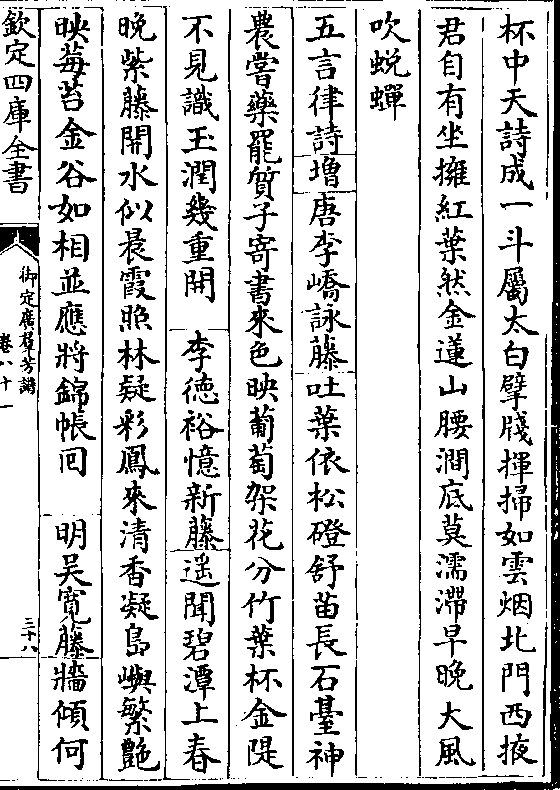 杯中天詩成一斗屬太白擘牋揮掃如雲烟北門西掖
君自有坐擁紅葉然金蓮山腰澗底莫濡滯早晚大風
吹蜕蟬
五言律詩增唐李嶠詠藤吐葉依松磴舒苗長石臺神
農嘗藥罷質子寄書來色映葡萄架花分竹葉杯金隄
不見識玉潤幾重開　李德裕憶新藤遥聞碧潭上春
晚紫藤開水似晨霞照林疑彩鳳來清香凝島嶼繁艶
映莓苔金谷如相並應將錦帳囘　明吳寛藤牆傾何
欽定四庫全書
御定廣羣芳譜
卷八十一
三十八